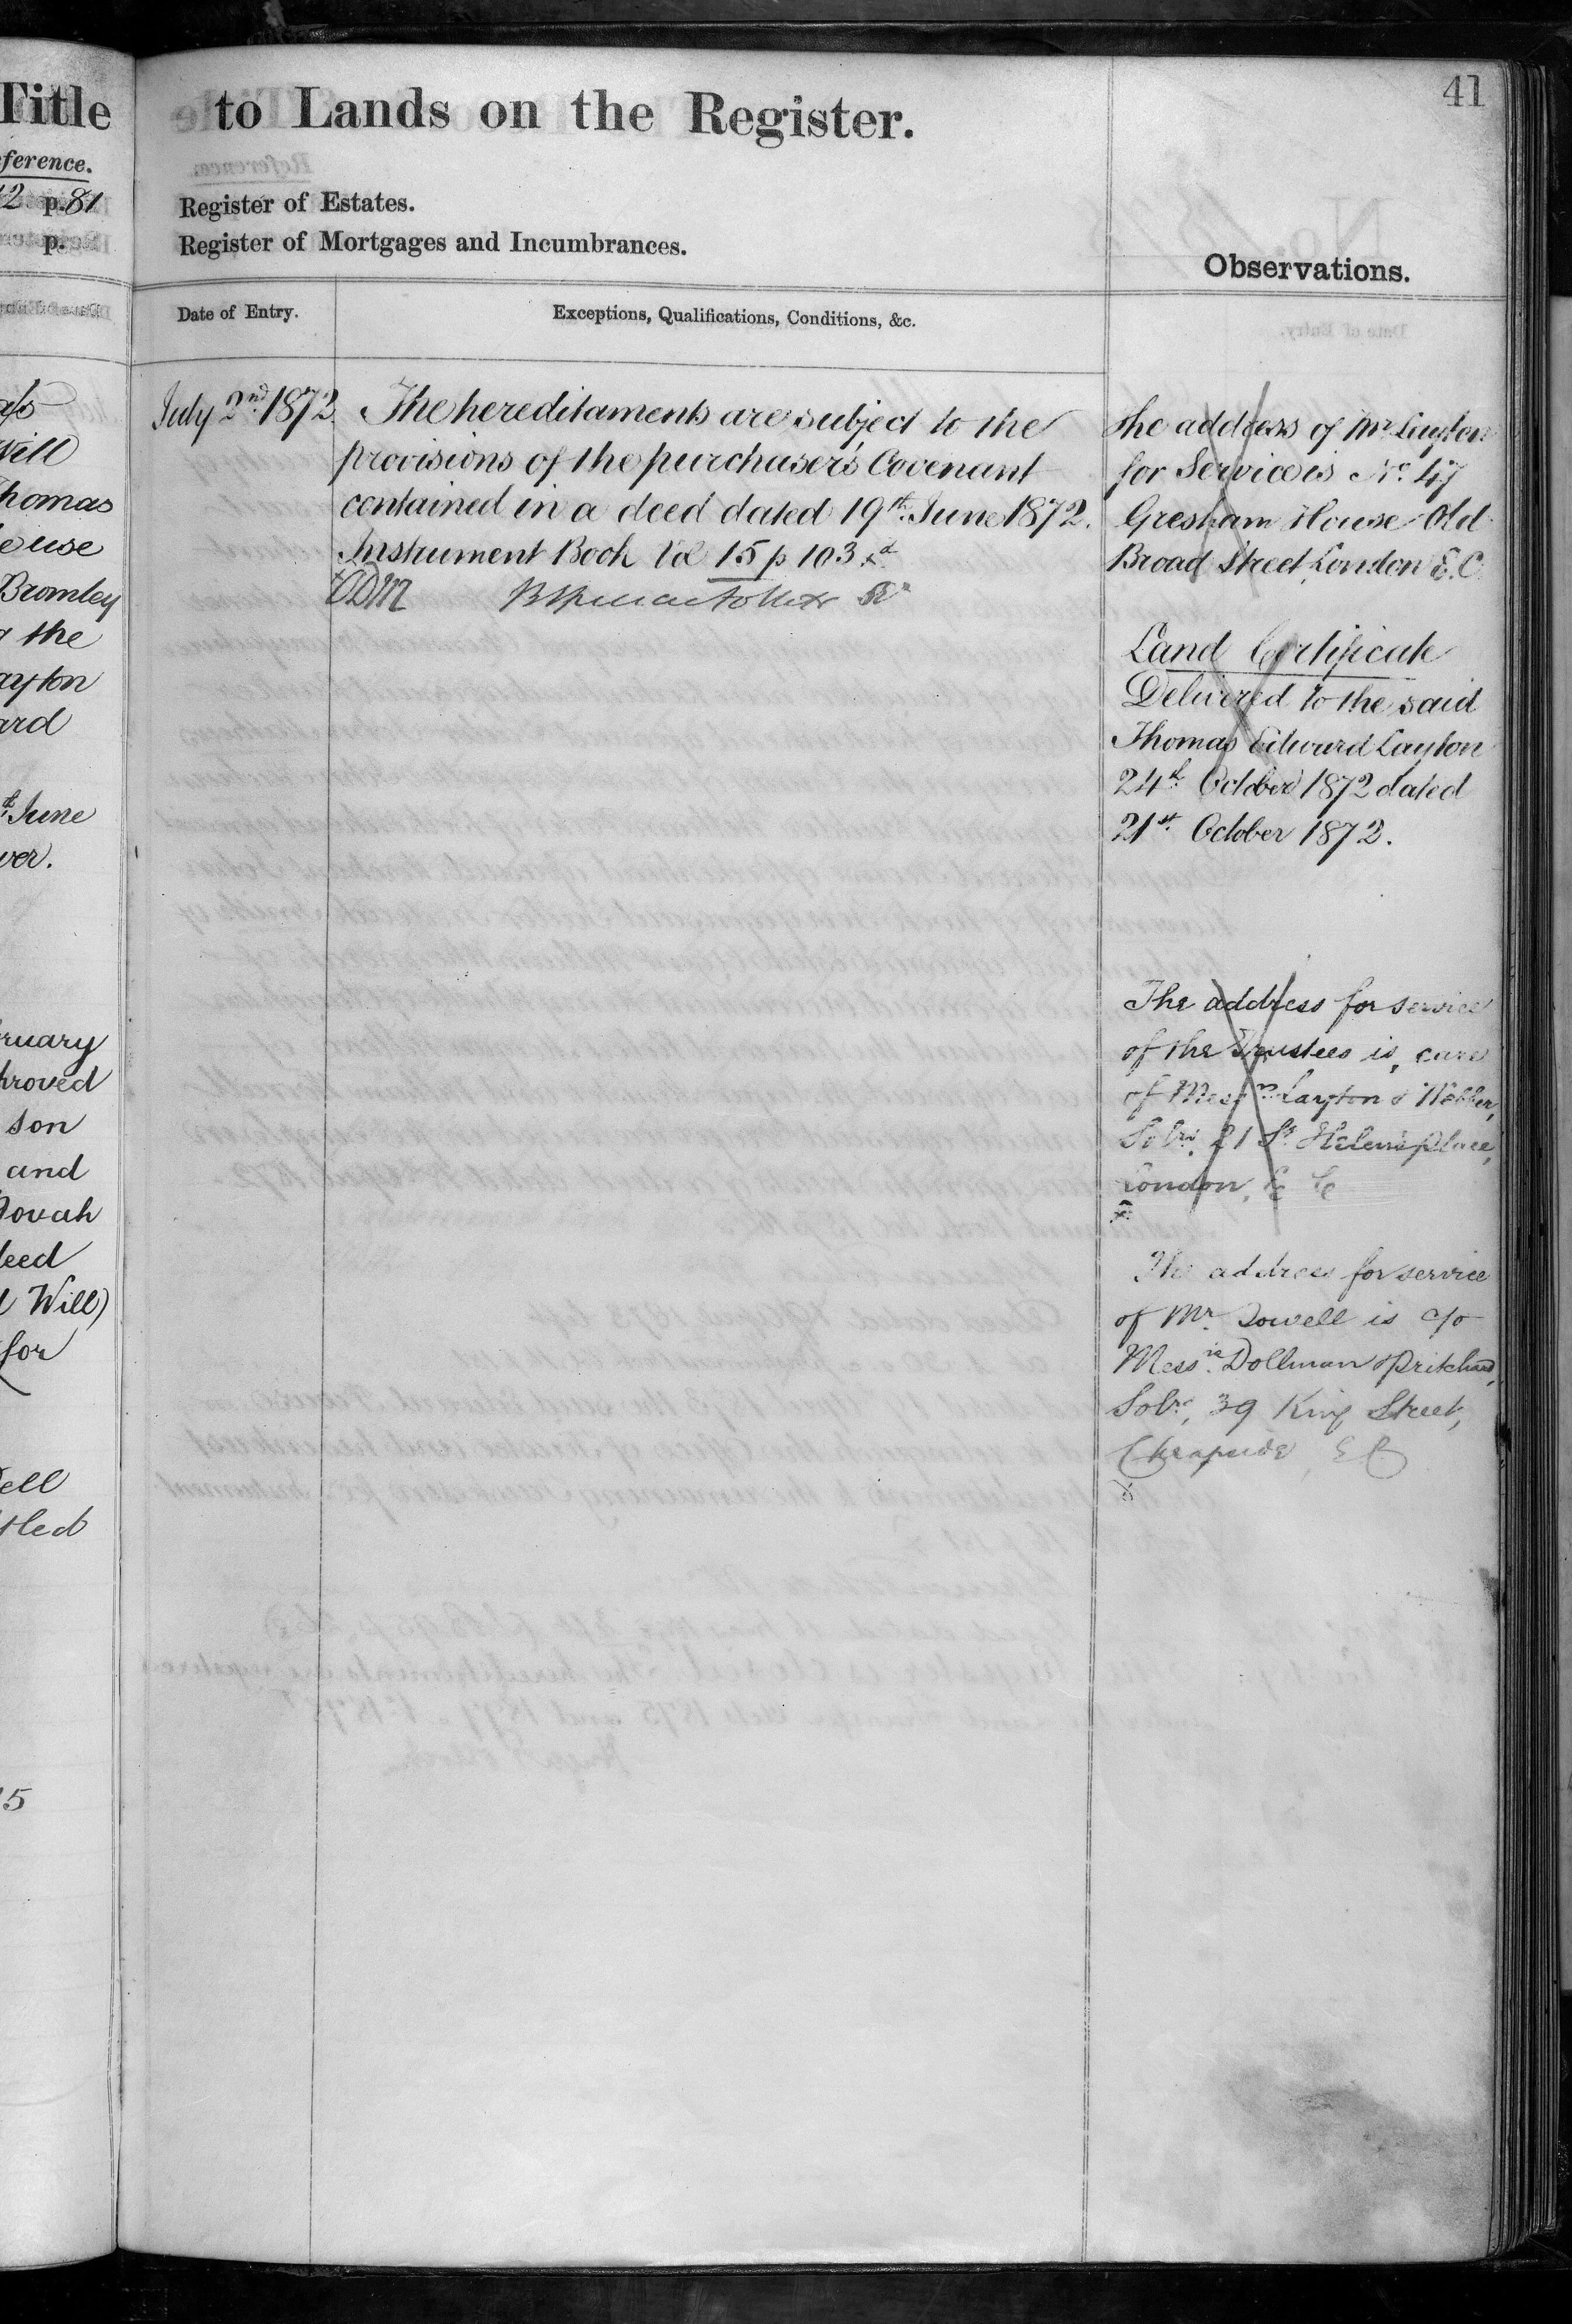 41
Title to Lands on the Register.
ference.
12 p. 81
p.
Register of Estates.
Register of Mortgages and Incumbrances.
Observations.
Date of Entry.
Exceptions, Qualifications, Conditions, &c.
July 2nd. 1872.
The hereditaments are subject to the
provisions of the purchaser's Covenant
contained in a deed dated 19th. June 1872.
Instrument Book Vol 15 p 103
The address of Mr Layton
for Service is No. 47
Gresham House Old
Broad Street London E.C.
Land Certificate
Delivered to the said
Thomas Edward Layton
24th. October 1872 dated
21st. October 1872.
The address for service
of the Trustees is, care
of Messrs. Layton & Webber,
Solrs. 21 St. Helen's place,
London, E C
The address for service
of Mr. Dowell is c/o
Messrs. Dollman & Pritchard,
Solrs, 39 King Street,
Cheapside, E C
Will
homas
euse
Bromley
the
ayton
ard
June
ver.
ruary
proved
son
and
Novah
deed
Will)
for
ell
tled
15